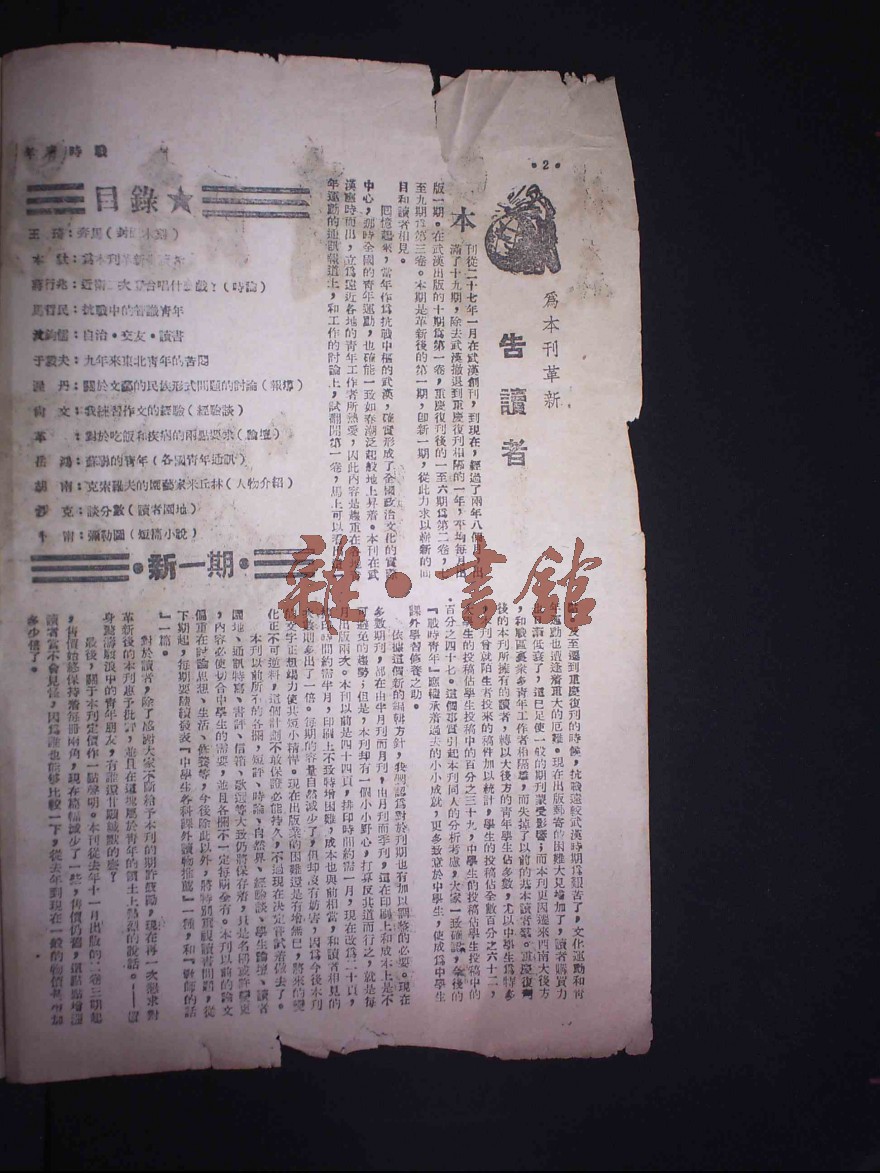 戰時青年
·2·
爲本刊革新
告讀者
本刊從二十七年一月在武漢創刊，到現在，經過了兩年八個月，出
滿了十九期，除去武漢撤退到重慶復刊相隔的一年，平均每月出
版一期。在武漢出版的十期爲第一卷，重慶復刊後的一至六期爲第二卷，
至九期爲第三卷。本期是革新後的第一期，卽新一期，從此力求以嶄新的面
目和讀者相見。
回憶起來，當年作爲抗戰中樞的武漢，確實形成了全國政治文化的
中心，那時全國的青年運動，也確能一致如春潮泛起般地上昇着。本刊在武
漢應時而出，立爲遠近各地的青年工作者所熱愛，因此內容是
年運動的通訊報道上，和工作的討論上，試翻閱第一卷，馬上可以
及至遷到重慶復刊的時候，抗戰遠較武漢時期爲艱苦了，文化運動和青
年運動也遭逢着重大的厄難。現在出版郵寄的困難大見增加了，讀者購買力
低衰了，這已足使一般的期刊蒙受影響；而本刊更因遠來西南大後方
，和戰區廣衆多青年工作者相隔離，而失掉了以前的基本讀者羣。重慶復刊
後的本刊所擁有的讀者，轉以大後方的青年學生佔多數，尤以中學生爲特多
，本刊曾就陌生者投來的稿件加以統計，學生的投稿佔全數百分之六十二，
大學生的投稿佔學生投稿中的百分之三十九，中學生的投稿佔學生投稿中的
百分之四十七。這個事實引起本刊同人的分析考慮，大家一致確認，今後的
『戰時青年』應繼承着過去的小小成就，更多致意於中學生，使成爲中學生
課外學習修養之助。
依據這個新的編輯方針，我們認爲對於刊期也有加以調整的必要。現在
多數期刊，都在由半月刊而月刊，由月刊而季刊，這在印刷上和成本上是不
可避免的趨勢；但是，本刊却有一個小小野心，打算反其道而行之，就是每
月出版兩次。本刊以前是四十四頁，排印時間約需一月，現在改爲二十頁，
排印時間約需半月，印刷上不致特增困難，成本也與前相當，和讀者相見的
次數期多出了一倍。每期的容量自然減少了，但却沒有妨害，因爲今後本刊
的文字正想竭力使其短小精悍。現在出版業的困難還是有增無已，將來的變
化正不可逆料，這個計劃不敢保證必能持久，不過現在決定嘗試着做去了。
本刊以前所有的各欄，短評、時論、自然界、經驗談、學生論壇、讀者
園地、通訊特寫、書評、信箱、歌選等大致仍將保存着，只是名稱或許變更
，內容必使切合中學生的需要，並且各欄不一定每期全有。本刊以前的論文
偏重在討論思想、生活、修養等，今後除此以外，將特別重視讀書問題，從
下期起，每期要陸續發表『中學生各科課外讀物推薦』一種，和『對師的話
』一篇。
對於讀者，除了感謝大家不斷給予本刊的期許鼓勵，現在再一次懇求對
革新後的本刊惠予批評，並且在這塊屬於青年的領土上熱烈的說話。——置
身驚濤駭浪中的青年朋友，有誰還甘願緘默的麼？
最後，關于本刊定價作一點聲明。本刊從去年十一月出版的二卷三期起
，售價始終保持着每冊兩角，現在篇幅減少了一些，售價仍舊，這點點增漲
讀者當不會見怪，因爲誰也能够比較一下，從去年到現在一般的物價是增加
多少倍了。
目錄★
王琦：奔馬（封面木刻）
本社：爲本刊革新告讀者
蔣行兆：近衛二次登台唱什麼戲？（時論）
馬哲民：抗戰中的智識青年
沈鈞儒：自治·交友·讀書
于毅夫：九年來東北青年的苦悶
丹：關於文藝的民族形式問題的討論（報導）
尚文：我練習作文的經驗（經驗談）
革：對於吃飯和疾病的兩點要求（論壇）
岳鴻：蘇聯的青年（各國青年通訊）
胡南：克索羅夫的園藝家米丘林（人物介紹）
沙克：談分數（讀者園地）
南：彌勒閣（短篇小說）
·新一期·
雜·書館